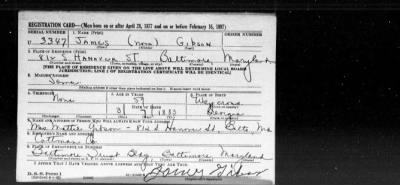 REGISTRATION CARD—(Men born on or after April 28, 1877 and on or before February 16, 1897)
SERIAL NUMBER 1. NAME (Print) ORDER NUMBER
U 3347 JAMES (NON) GIBSON
(First) (Middle) (Last)
2. PLACE OF RESIDENCE (Print)
812 S. HANOVER ST. Baltimore, Maryland
[THE PLACE OF RESIDENCE GIVEN ON THE LINE ABOVE WILL DETERMINE LOCAL BOARD
JURISDICTION; LINE 2 OF REGISTRATION CERTIFICATE WILL BE IDENTICAL]
3. MAILING ADDRESS
Same
4. TELEPHONE 5. AGE IN YEARS 6. PLACE OF BIRTH
None
DATE OF BIRTH Waycross
3 1883 Georgia
7. NAME AND ADDRESS OF PERSON WHO WILL ALWAYS KNOW YOUR ADDRESS
Mrs Mattie Gibson - 812 S Hanover St. Balto, Md
8. EMPLOYER'S NAME AND ADDRESS
Co.
9. PLACE OF EMPLOYMENT OR BUSINESS
Baltimore Trust Bldg. Baltimore Maryland
I AFFIRM THAT I HAVE VERIFIED ABOVE ANSWERS AND THAT THEY ARE TRUE.
D. S. S. Form 1
James Gibson